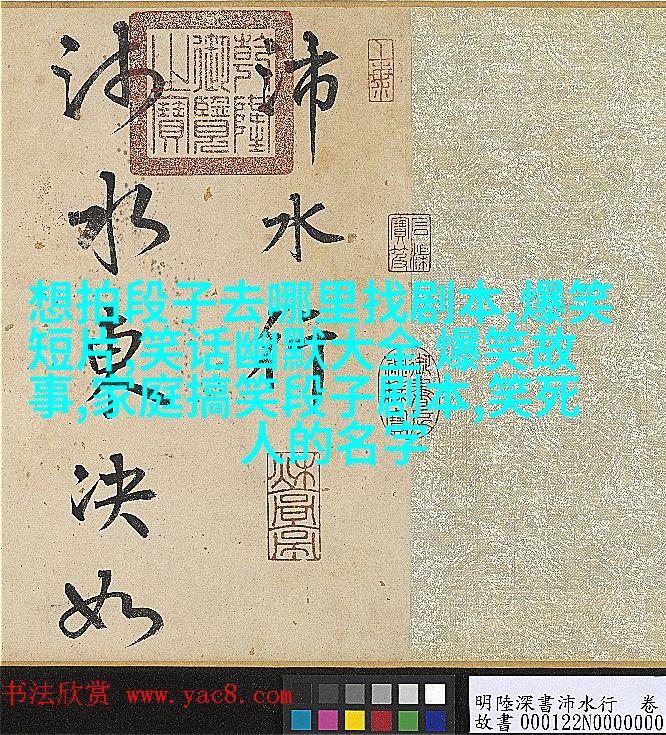 沛水行
沛水決如
乾隆
御覽
之寶
想拍段子去哪里找剧本,爆笑
短片,笑话幽默大全,爆笑故
事,家庭搞笑段子剧本,笑死
人的名字
书法欣赏 www.yac8.com
明陸深書沛水行 卷
故書000122N0000000